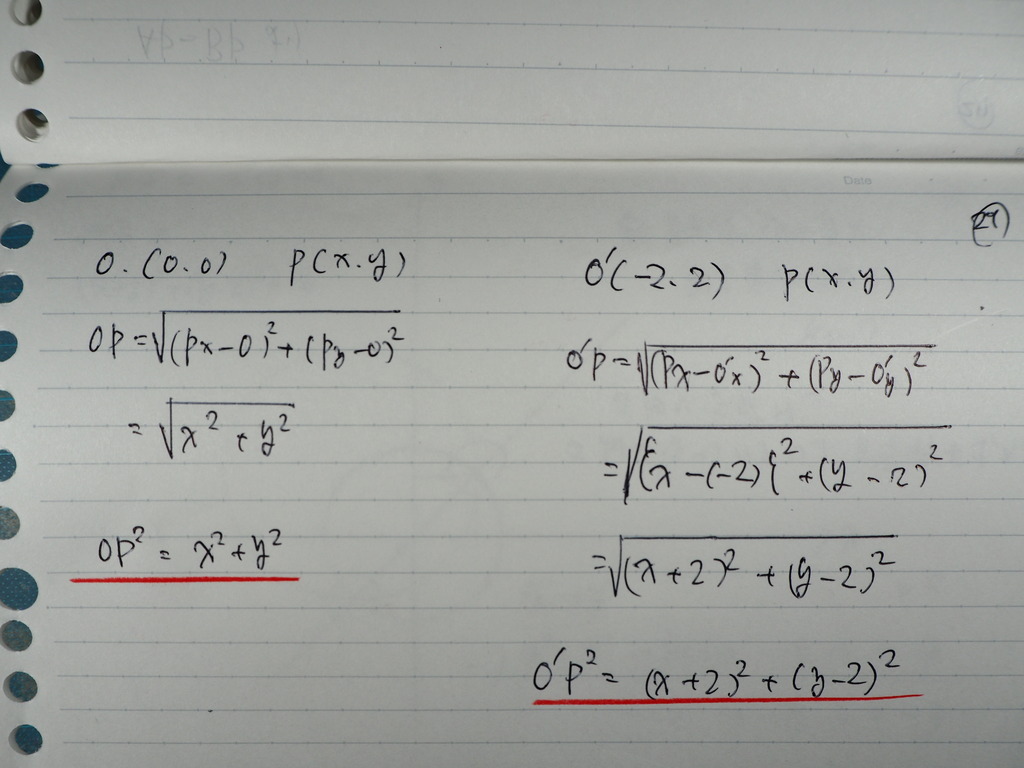 Date
27
O. (0.0) P(x.y)
OP = √(Px-0)² + (Py-0)²
= √x² + y²
OP² = x² + y²
O'(-2.2) P(x.y)
O'P = √(Px-O'x)² + (Py-O'y)²
= √{x-(-2)}² + (y-2)²
= √(x+2)² + (y-2)²
O'P² = (x+2)² + (y-2)²